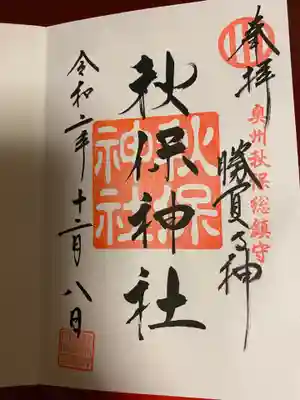 奉拝
奥州秋保総鎮守
勝負の神
秋保神社
秋保
神社
令和二年十二月八日